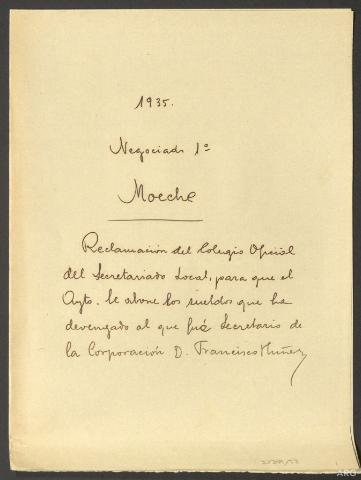 1935.
Negociado 1º
Moeche
Reclamación del Colegio Oficial
del Secretariado Local, para que el
Ayto. le abone los sueldos que ha
devengado al que fué Secretario de
la Corporación D. Francisco Muñez
ARG